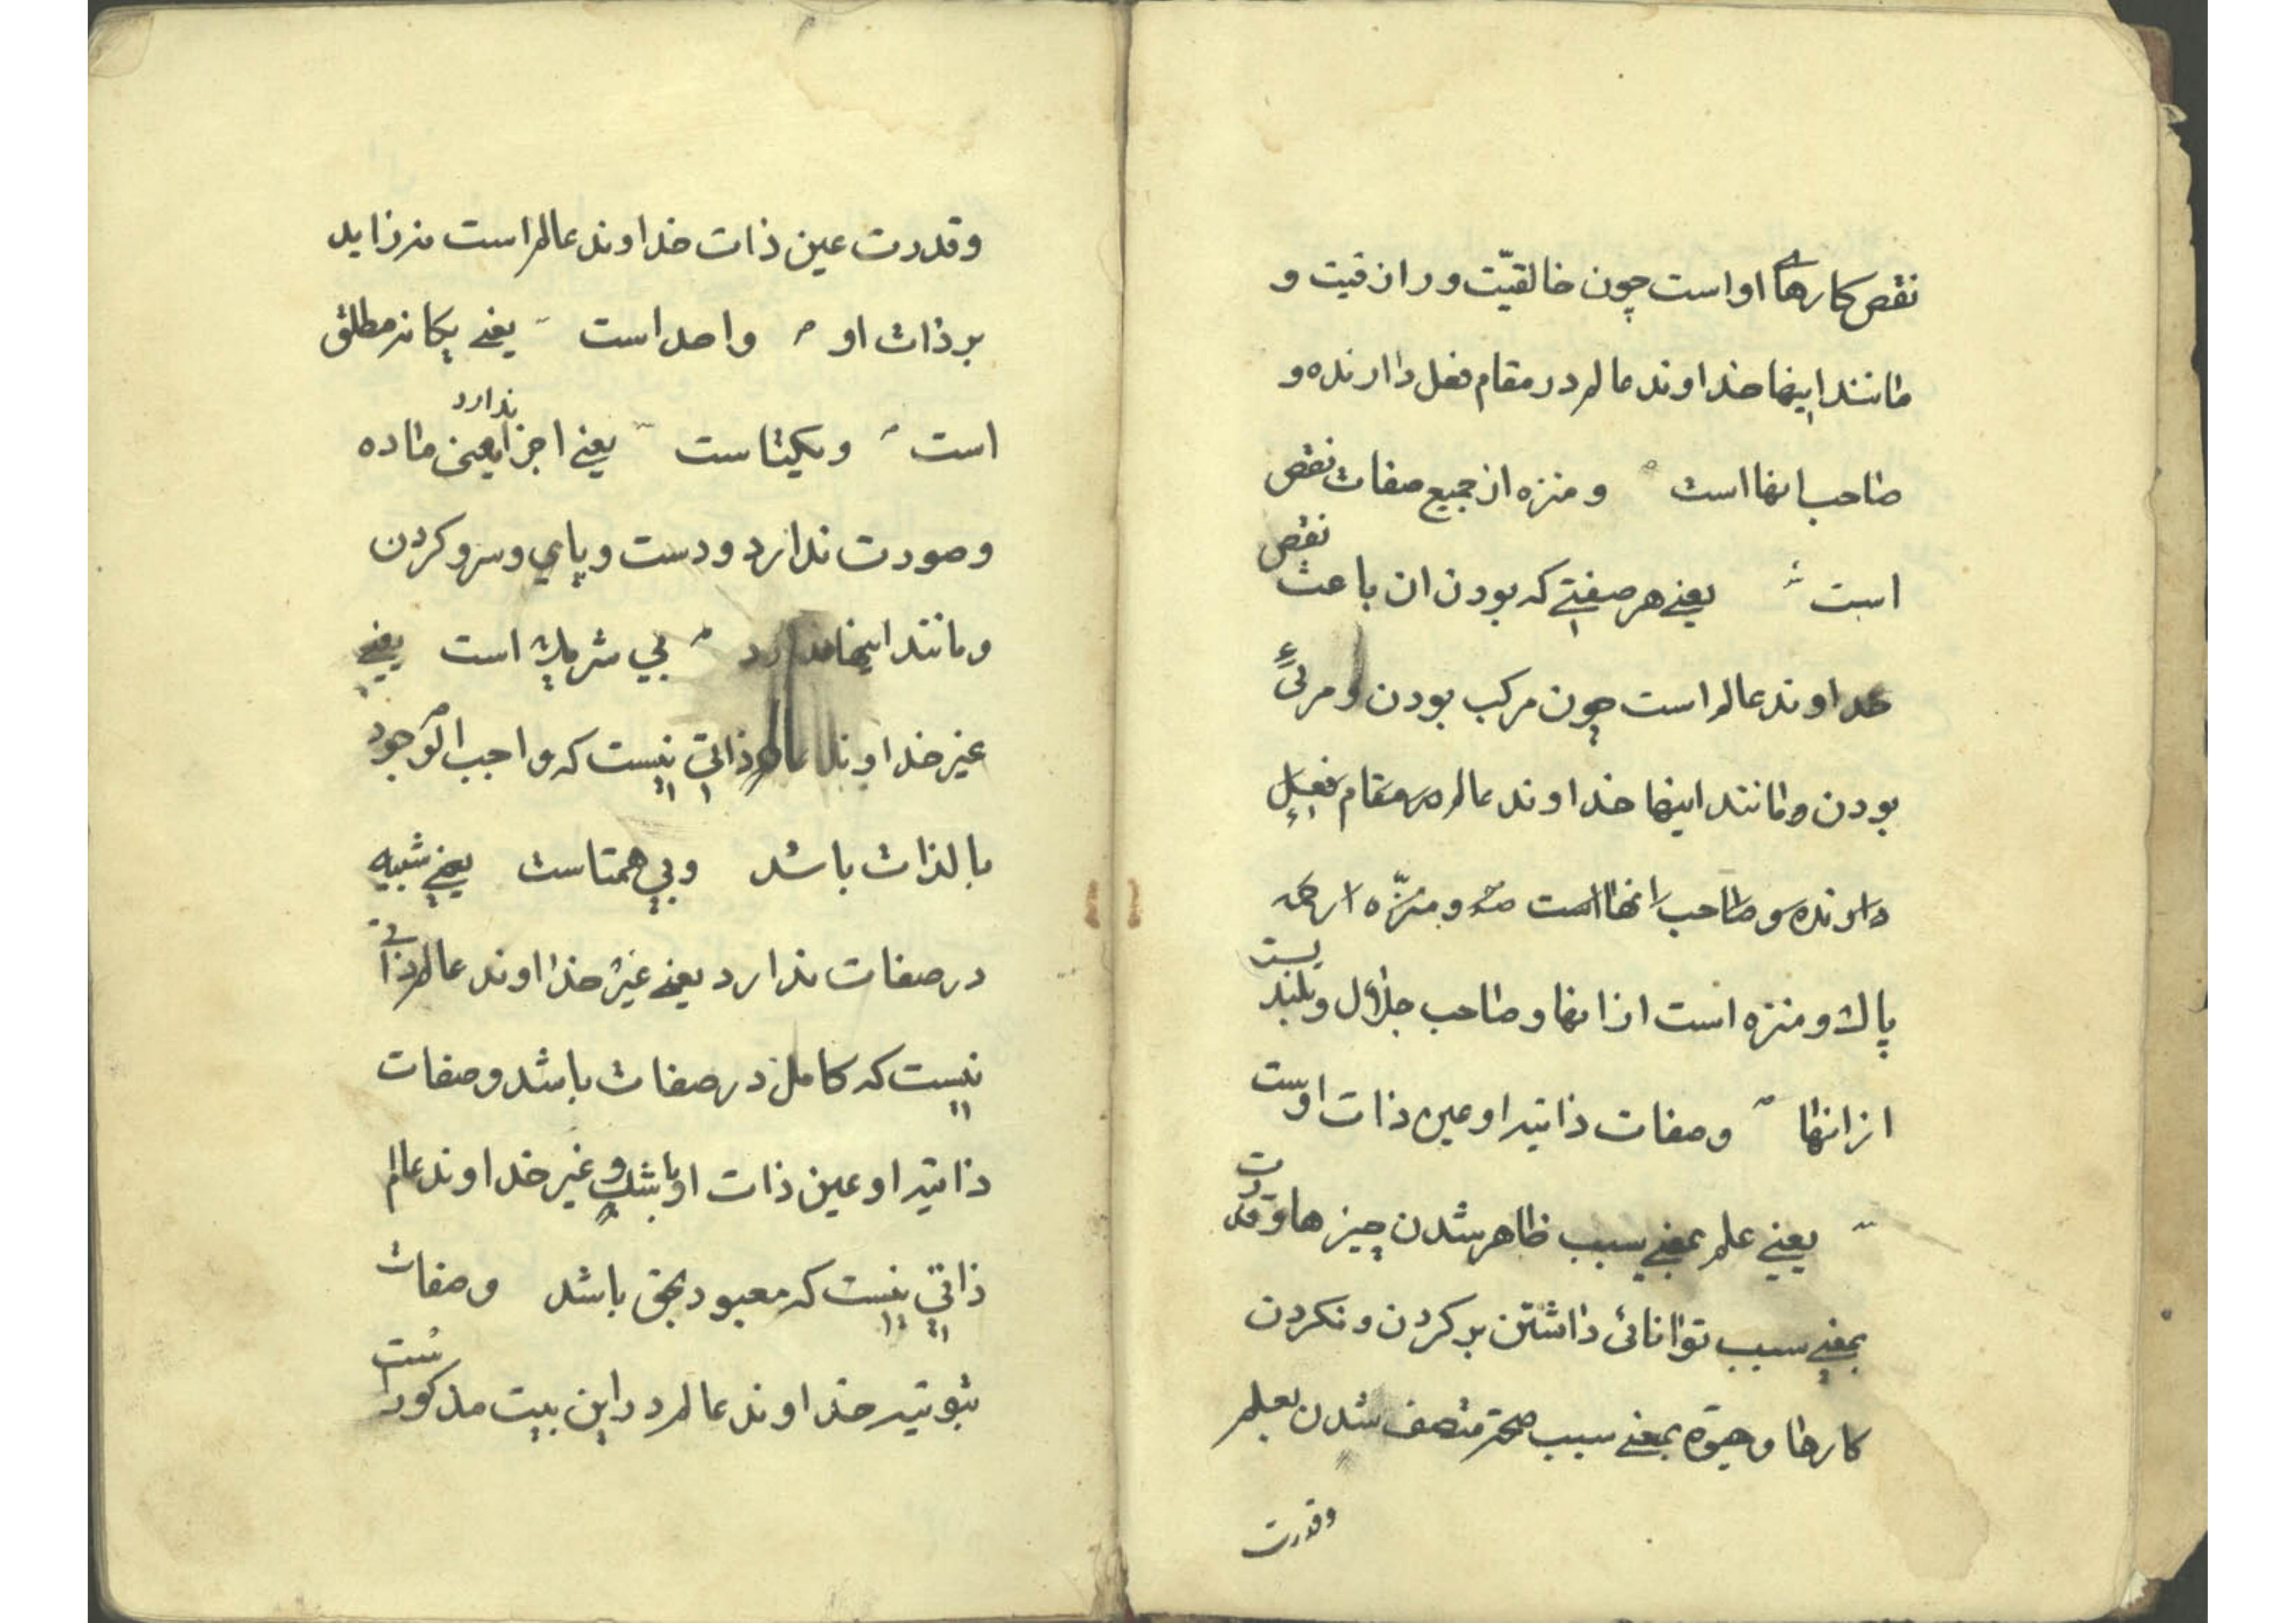 نقص کارهای او است چون خالقیّت و رازقیت و
مانند اینها خداوند عالم در مقام فعل دارنده و
صاحب انها است و منزه از جمیع صفات نقص
است یعنی هر صفتی که بودن ان باعث نقص
خداوند عالم است چون مرکب بودن و مرئی
بودن و مانند اینها خداوند عالم در مقام فعل
دارنده و صاحب انها است و منزّه
پاک و منزه است از انها و صاحب جلال و بلندیست
از انها و صفات ذاتیه او عین ذات اوست
یعنی علم بمعنی سبب ظاهر شدن چیزها و قدرت
بمعنی سبب توانائی داشتن بر کردن و نکردن
کارها و حیوة بمعنی سبب صحة متصف شدن بعلم
وقدرت
وقدرت عین ذات خداوند عالم است نه زاید
بر ذات او واحد است یعنی یکانه مطلق
است و یکیتاست یعنی اجزا ندارد یعنی ماده
وصورت ندارد و دست و پای و سر و کردن
و مانند اینها ندارد بی شریک است یعنی
غیر خداوند عالم ذاتی نیست که واجب الوجود
بالذات باشد و بی همتاست یعنی شبیه
در صفات ندارد یعنی غیر خداوند عالم ذاتی
نیست که کامل در صفات باشد و صفات
ذاتیه او عین ذات او باشد و غیر خداوند عالم
ذاتی نیست که معبود بحق باشد و صفات
ثبوتیه خداوند عالم در این بیت مذکور است